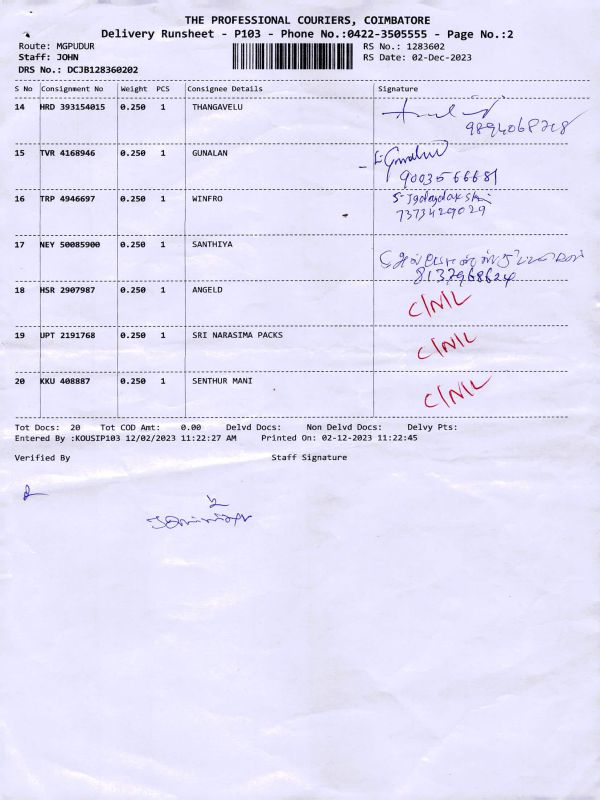 THE PROFESSIONAL COURIERS, COIMBATORE
Delivery Runsheet - P103 - Phone No.:0422-3505555 - Page No.:2
Route: MGPUDUR RS No.: 1283602
Staff: JOHN RS Date: 02-Dec-2023
DRS No.: DCJB128360202
S No Consignment No Weight PCS Consignee Details Signature
14 HRD 393154015 0.250 1 THANGAVELU
9894068268
15 TVR 4168946 0.250 1 GUNALAN
9003566681
16 TRP 4946697 0.250 1 WINFRO
7373429029
17 NEY 50085900 0.250 1 SANTHIYA
8137968624
18 HSR 2907987 0.250 1 ANGELD C/N/L
19 UPT 2191768 0.250 1 SRI NARASIMA PACKS C/N/L
20 KKU 408887 0.250 1 SENTHUR MANI C/N/L
Tot Docs: 20 Tot COD Amt: 0.00 Delvd Docs: Non Delvd Docs: Delvy Pts:
Entered By :KOUSIP103 12/02/2023 11:22:27 AM Printed On: 02-12-2023 11:22:45
Verified By Staff Signature